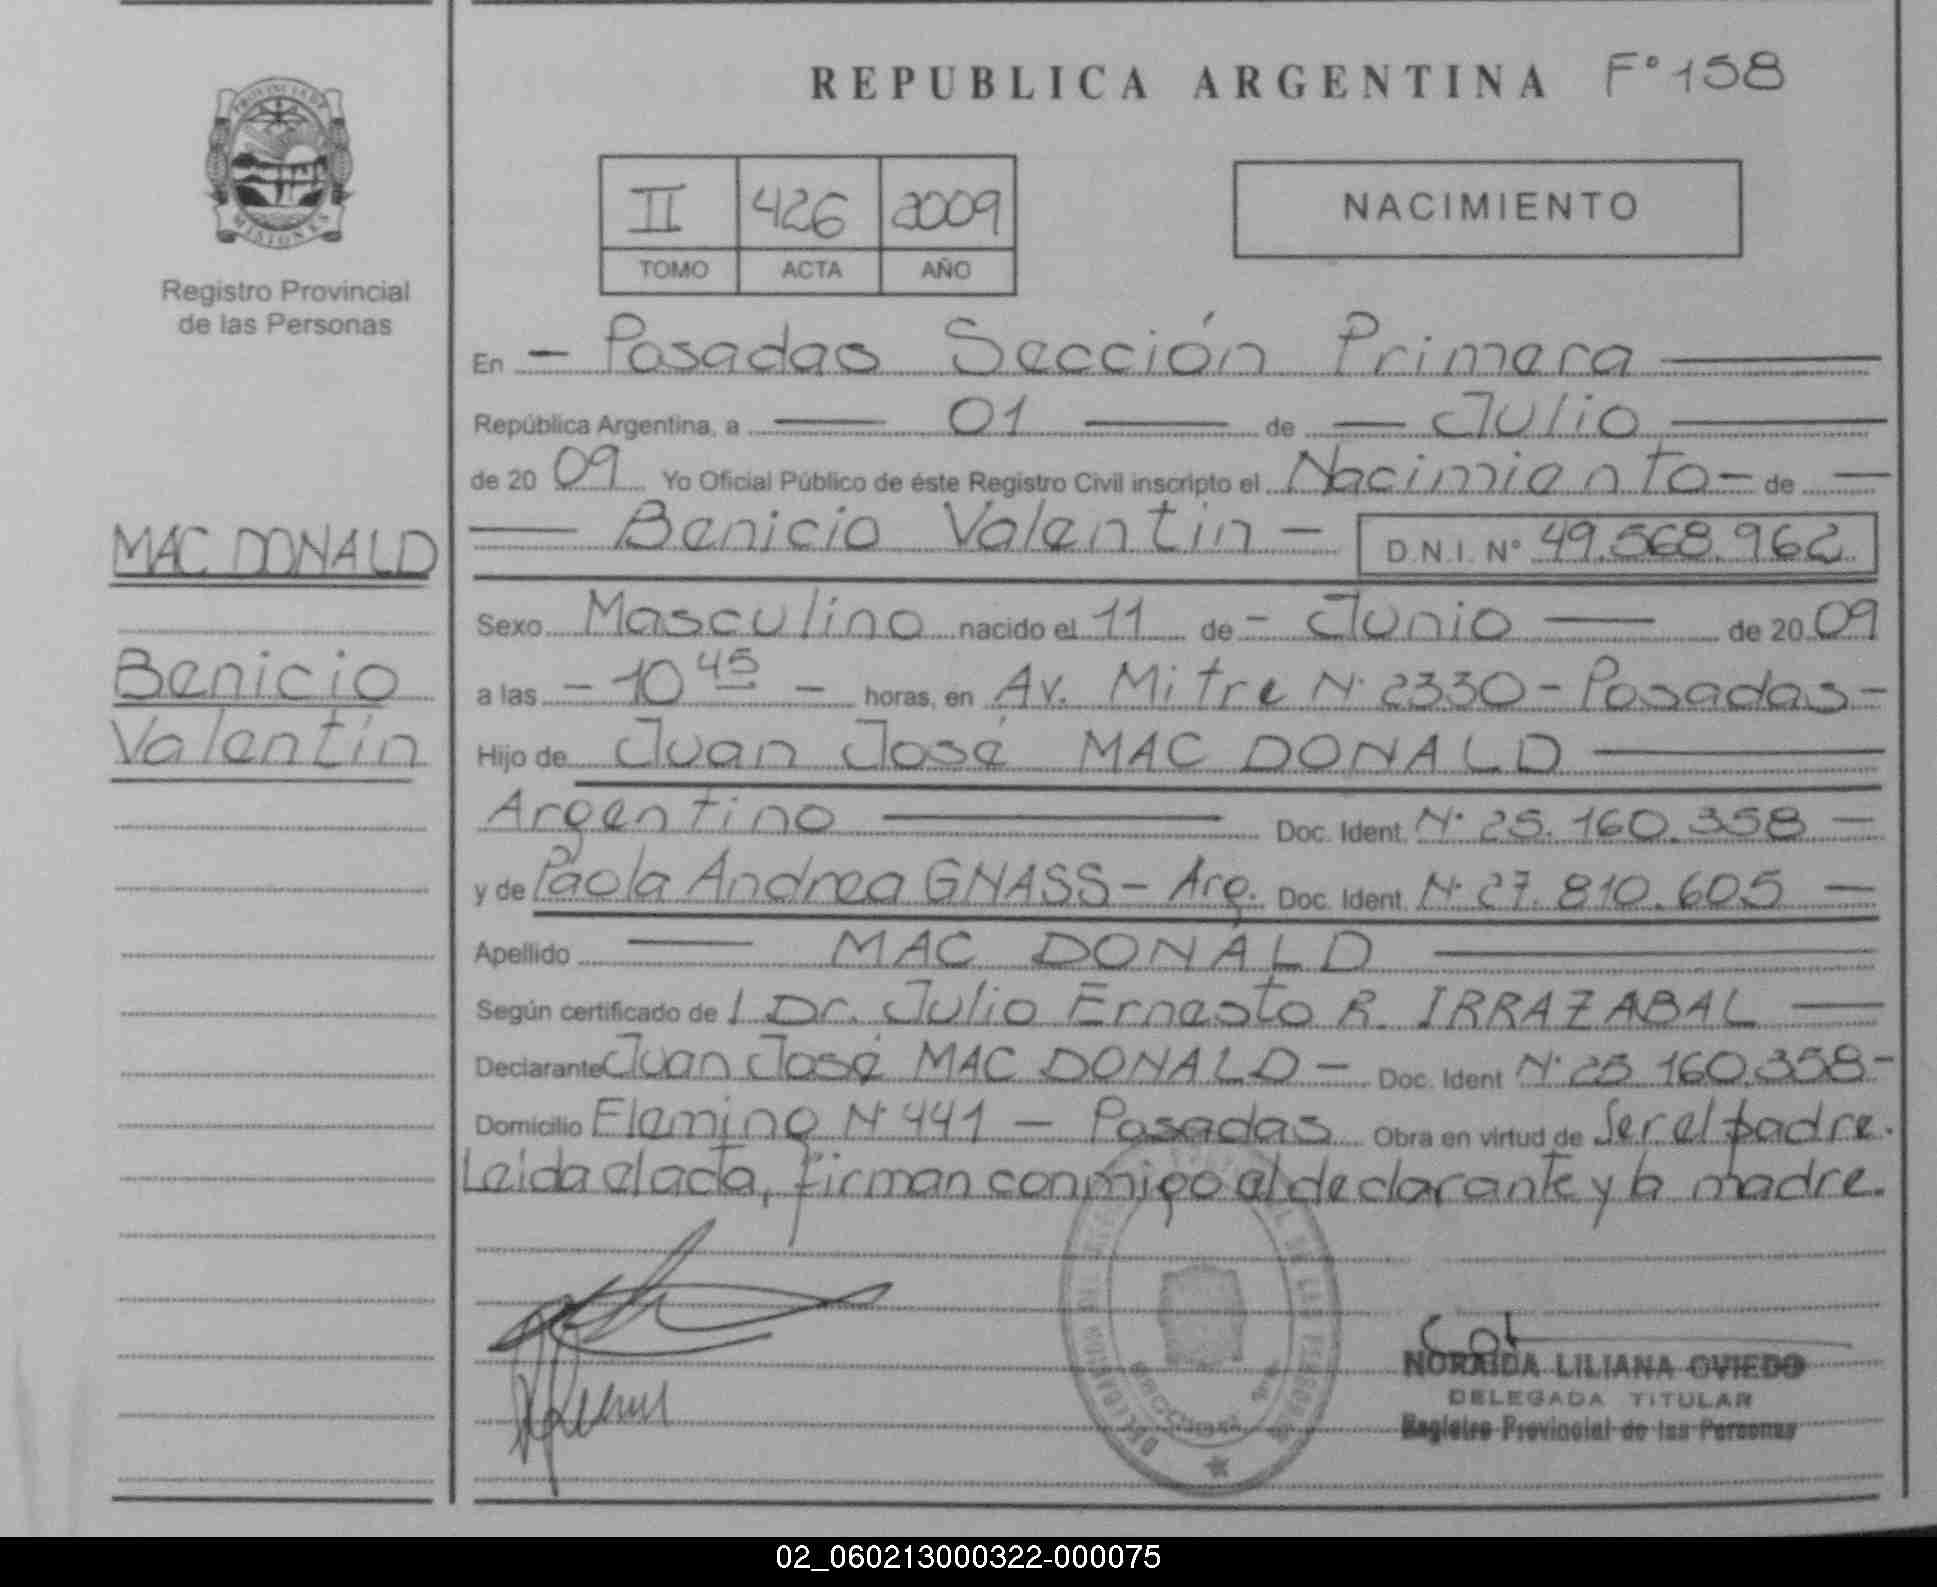 REPUBLICA ARGENTINA F° 158
PROVINCIA DE
MISIONES
Registro Provincial
de las Personas
II 426 2009
TOMO ACTA AÑO
NACIMIENTO
En - Posadas Sección Primera
República Argentina, a 01 de Julio
de 20 09 Yo Oficial Público de éste Registro Civil inscripto el Nacimiento - de
Benicio Valentín - D.N.I. N° 49.568.962
MAC DONALD
Benicio
Valentín
Sexo Masculino nacido el 11 de - Junio de 20 09
a las - 10 45 - horas, en Av. Mitre N° 2330 - Posadas -
Hijo de Juan José MAC DONALD
Argentino Doc. Ident. N° 25.160.358 -
y de Paola Andrea GNASS - Arg. Doc. Ident. N° 27.810.605 -
Apellido MAC DONALD
Según certificado de l Dr. Julio Ernesto R. IRRAZABAL
Declarante Juan José MAC DONALD - Doc. Ident N° 25.160.358 -
Domicilio Fleming N° 441 - Posadas Obra en virtud de Ser el padre.
Leida el acta, firman conmigo el declarante y la madre.
NORAIDA LILIANA OVIEDO
DELEGADA TITULAR
Registro Provincial de las Personas
02_060213000322-000075